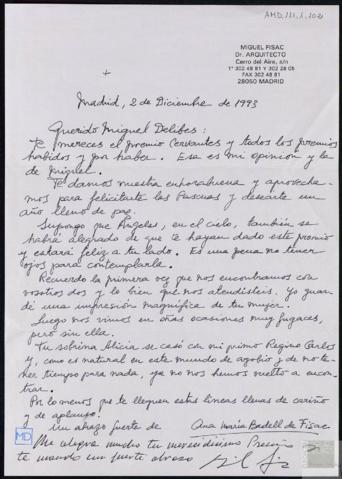 AMD, 111, 1, 102
MIGUEL FISAC
Dr. ARQUITECTO
Cerro del Aire, s/n
Tº 302 48 81 Y 302 28 05
FAX 302 48 81
28050 MADRID
+
Madrid, 2 de Diciembre de 1993
Querido Miguel Delibes:
Te mereces el premio Cervantes y todos los premios
habidos y por haber. Esa es mi opinión y la
de Miguel.
Te damos nuestra enhorabuena y aprovecha-
mos para felicitarte las Pascuas y desearte un
año lleno de paz.
Supongo que Angeles, en el cielo, también se
habrá alegrado de que te hayan dado este premio
y estará feliz a tu lado. Es una pena no tener
ojos para contemplarla.
Recuerdo la primera vez que nos encontramos con
vosotros dos y lo bien que nos atendisteis. Yo guar-
dé una impresión magnífica de tu mujer.
Luego nos vimos en otras ocasiones muy fugaces,
pero sin ella.
Tu sobrina Alicia se casó con mi primo Regino Carlos
y, como es natural en este mundo de agobio y de no te-
ner tiempo para nada, ya no nos hemos vuelto a encon-
trar.
Por lo menos que te lleguen estas líneas llenas de cariño
y de aplauso.
Un abrazo fuerte de Ana María Badell de Fisac
MD
Me alegra mucho tu merecidísimo Premio
te mando un fuerte abrazo